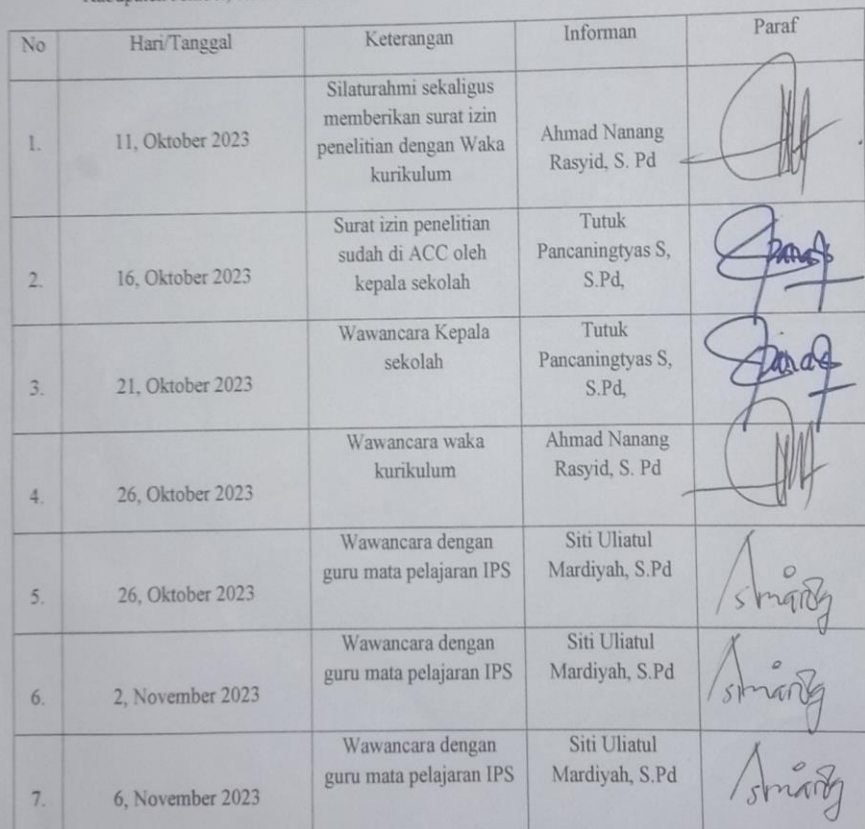 No Hari/Tanggal Keterangan Informan Paraf
1. 11, Oktober 2023
Silaturahmi sekaligus
memberikan surat izin
penelitian dengan Waka
kurikulum
Ahmad Nanang
Rasyid, S. Pd
2. 16, Oktober 2023
Surat izin penelitian
sudah di ACC oleh
kepala sekolah
Tutuk
Pancaningtyas S,
S.Pd,
3. 21, Oktober 2023
Wawancara Kepala
sekolah
Tutuk
Pancaningtyas S,
S.Pd,
4. 26, Oktober 2023
Wawancara waka
kurikulum
Ahmad Nanang
Rasyid, S. Pd
5. 26, Oktober 2023
Wawancara dengan
guru mata pelajaran IPS
Siti Uliatul
Mardiyah, S.Pd
6. 2, November 2023
Wawancara dengan
guru mata pelajaran IPS
Siti Uliatul
Mardiyah, S.Pd
7. 6, November 2023
Wawancara dengan
guru mata pelajaran IPS
Siti Uliatul
Mardiyah, S.Pd